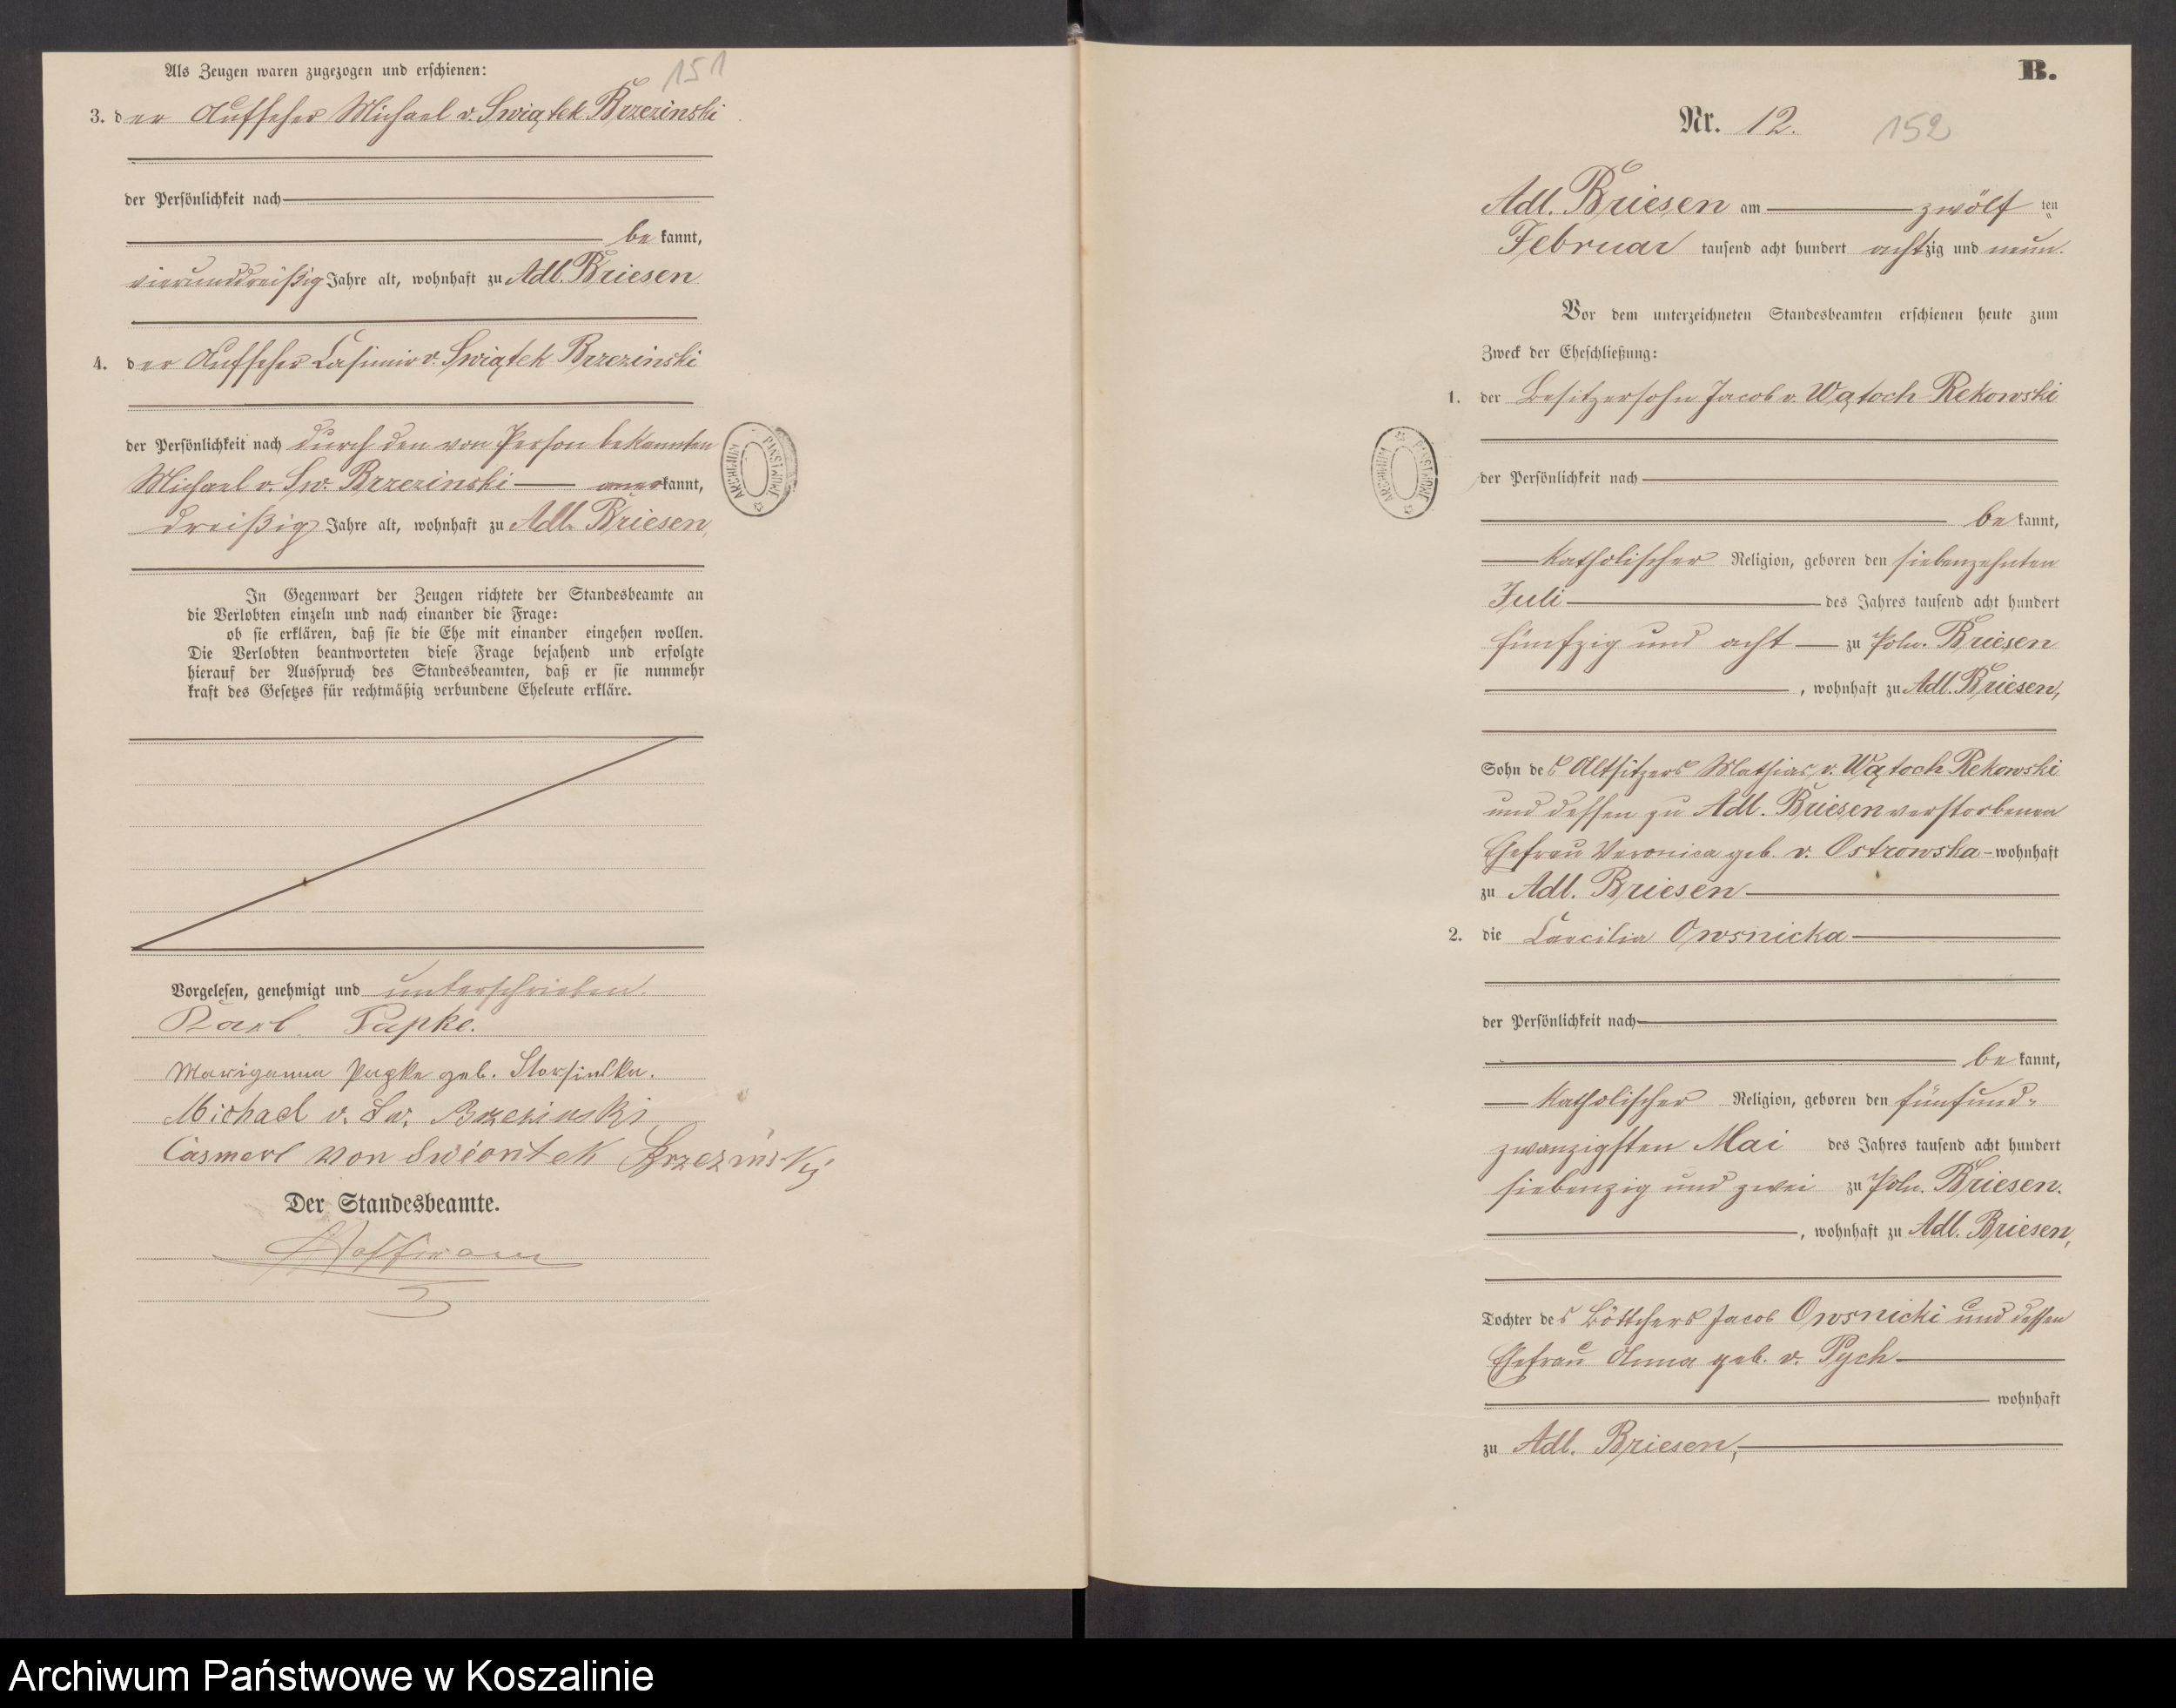 Als Zeugen waren zugezogen und erschienen:
151
3. der Aufseher Michael v. Swiątek Brzezinski
der Persönlichkeit nach
be kannt,
vierunddreißig Jahre alt, wohnhaft zu Adl. Briesen
4. der Aufseher Casimir v. Swiątek Brzezinski
der Persönlichkeit nach durch den von Person bekannten
Michael v. Sw. Brzezinski anerkannt,
dreißig Jahre alt, wohnhaft zu Adl. Briesen,
In Gegenwart der Zeugen richtete der Standesbeamte an
die Verlobten einzeln und nach einander die Frage:
ob sie erklären, daß sie die Ehe mit einander eingehen wollen.
Die Verlobten beantworteten diese Frage bejahend und erfolgte
hierauf der Ausspruch des Standesbeamten, daß er sie nunmehr
kraft des Gesetzes für rechtmäßig verbundene Eheleute erkläre.
Vorgelesen, genehmigt und unterschrieben.
Karl Papke.
Marianna Papke geb.
Michael v. Sw. Brzezinski
Casmerl von Swiontek Brzezinsky
Der Standesbeamte.
Hoffmann
ARCHIWUM PAŃSTWOWE
B.
Nr. 12.
152
Adl. Briesen am zwölf ten
Februar tausend acht hundert achtzig und neun.
Vor dem unterzeichneten Standesbeamten erschienen heute zum
Zweck der Eheschließung:
1. der Besitzersohn Jacob v. Wątoch Rekowski
der Persönlichkeit nach
be kannt,
katholischer Religion, geboren den siebenzehnten
Juli des Jahres tausend acht hundert
fünfzig und acht zu Poln. Briesen
, wohnhaft zu Adl. Briesen,
Sohn des Altsitzers Mathias v. Wątoch Rekowski
und dessen zu Adl. Briesen verstorbenen
Ehefrau Veronica geb. v. Ostrowska - wohnhaft
zu Adl. Briesen
2. die Caecilia Owsnicka
der Persönlichkeit nach
be kannt,
katholischer Religion, geboren den fünfund-
zwanzigsten Mai des Jahres tausend acht hundert
siebenzig und zwei zu Poln. Briesen.
, wohnhaft zu Adl. Briesen,
Tochter des Böttchers Jacob Owsnicki und dessen
Ehefrau Anna geb. v. Pych
wohnhaft
zu Adl. Briesen,
ARCHIWUM PAŃSTWOWE
Archiwum Państwowe w Koszalinie